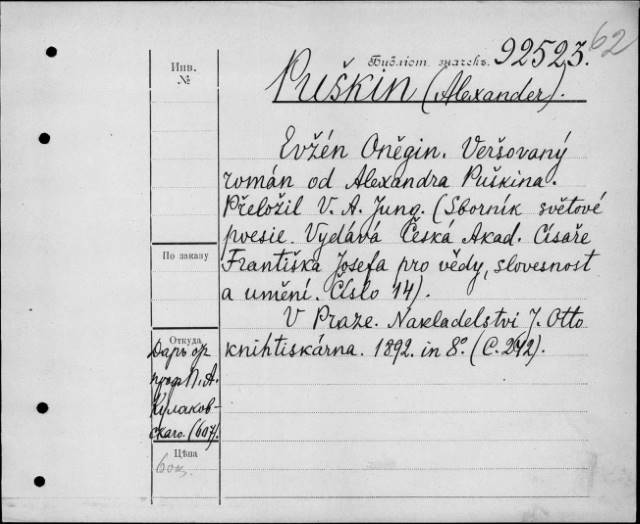 62
Инв.
№
Библіот. значекъ. 92523.
Puškin (Alexander).
Evžén Oněgin. Veršovaný
román od Alexandra Puškina.
Přeložil V. A. Jung. (Sborník světové
poesie. Vydává Česká Akad. Císaře
Františka Josefa pro vědy, slovesnost
a umění. Číslo 14).
V Praze. Nakladelství J. Otto
knihtiskárna. 1892. in 8º. (C. 242).
По заказу
Откуда
Даръ отъ
проф. П. А.
Кулаков-
скаго. (607).
Цѣна
60к.